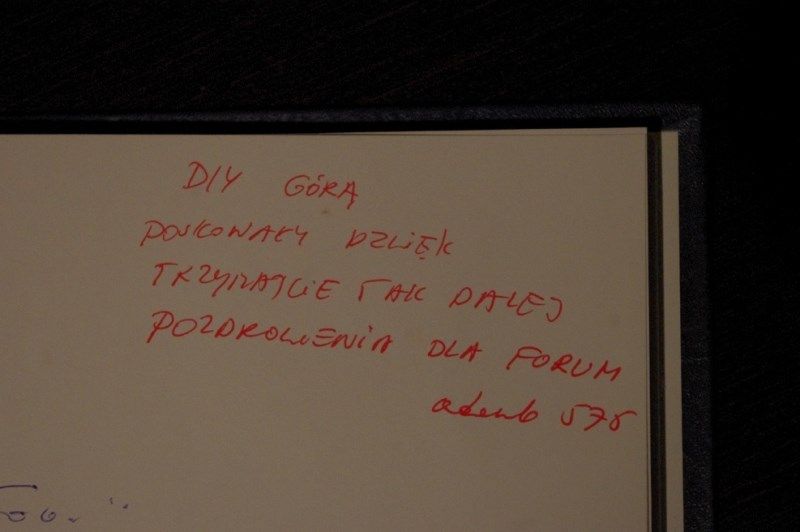 DIY GÓRĄ
DOSKONAŁY DZWIĘK
TRZYMAJCIE TAK DALEJ
POZDROWIENIA DLA FORUM